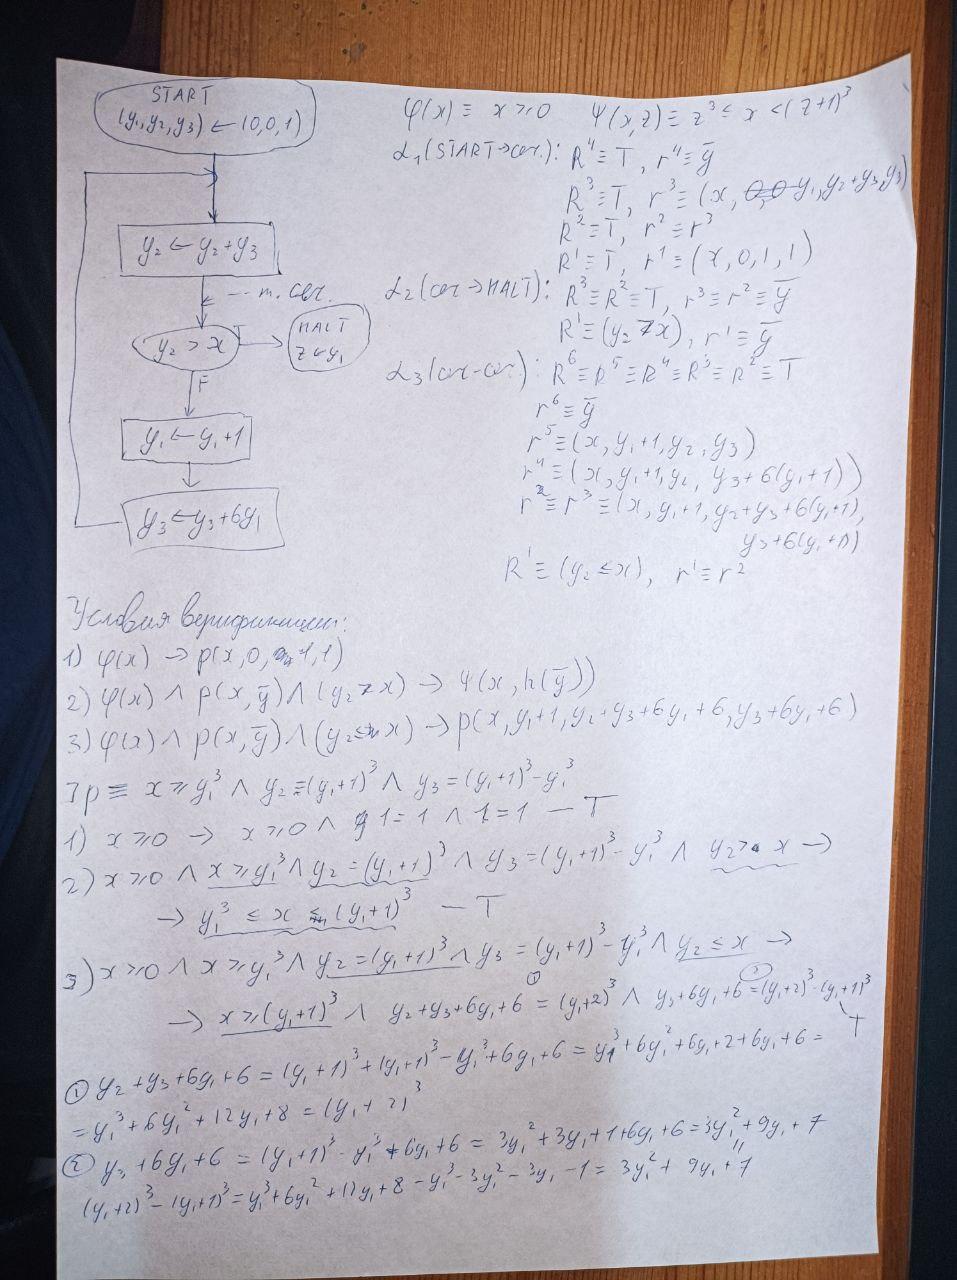 START
(y₁,y₂,y₃) ← (0,0,1)
y₂ ← y₂+y₃
-- т. сеч.
y₂ > x
T
HALT
z ← y₁
F
y₁ ← y₁+1
y₃ ← y₃+6y₁
φ(x) ≡ x ⩾ 0 Ψ(x,z) ≡ z³ ≤ x < (z+1)³
α₁(START→сеч.): R⁴ ≡ T, r⁴ ≡ ȳ
R³ ≡ T, r³ ≡ (x, y₁, y₂+y₃, y₃)
R² ≡ T, r² ≡ r³
R¹ ≡ T, r¹ ≡ (x, 0, 1, 1)
α₂(сеч→HALT): R³ ≡ R² ≡ T, r³ ≡ r² ≡ ȳ
R¹ ≡ (y₂ > x), r¹ ≡ ȳ
α₃(сеч-сеч.): R⁶ ≡ R⁵ ≡ R⁴ ≡ R³ ≡ R² ≡ T
r⁶ ≡ ȳ
r⁵ ≡ (x, y₁+1, y₂, y₃)
r⁴ ≡ (x, y₁+1, y₂, y₃+6(y₁+1))
r² ≡ r³ ≡ (x, y₁+1, y₂+y₃+6(y₁+1),
y₃+6(y₁+1))
R¹ ≡ (y₂ ≤ x), r¹ ≡ r²
Условия верификации:
1) φ(x) → p(x,0,1,1)
2) φ(x) ∧ p(x,ȳ) ∧ (y₂ > x) → Ψ(x, h(ȳ))
3) φ(x) ∧ p(x,ȳ) ∧ (y₂ ≤ x) → p(x, y₁+1, y₂+y₃+6y₁+6, y₃+6y₁+6)
∃ p ≡ x ⩾ y₁³ ∧ y₂ = (y₁+1)³ ∧ y₃ = (y₁+1)³ - y₁³
1) x ⩾ 0 → x ⩾ 0 ∧ 1 = 1 ∧ 1 = 1 — T
2) x ⩾ 0 ∧ x ⩾ y₁³ ∧ y₂ = (y₁+1)³ ∧ y₃ = (y₁+1)³ - y₁³ ∧ y₂ > x →
→ y₁³ ≤ x < (y₁+1)³ — T
3) x ⩾ 0 ∧ x ⩾ y₁³ ∧ y₂ = (y₁+1)³ ∧ y₃ = (y₁+1)³ - y₁³ ∧ y₂ ≤ x →
→ x ⩾ (y₁+1)³ ∧ y₂+y₃+6y₁+6 =① (y₁+2)³ ∧ y₃+6y₁+6 =② (y₁+2)³ - (y₁+1)³
T
① y₂+y₃+6y₁+6 = (y₁+1)³+(y₁+1)³ - y₁³+6y₁+6 = y₁³+6y₁²+6y₁+2+6y₁+6 =
= y₁³+6y₁²+12y₁+8 = (y₁+2)³
② y₃+6y₁+6 = (y₁+1)³ - y₁³+6y₁+6 = 3y₁²+3y₁+1+6y₁+6 = 3y₁²+9y₁+7
(y₁+2)³ - (y₁+1)³ = y₁³+6y₁²+12y₁+8 - y₁³ - 3y₁² - 3y₁ - 1 = 3y₁²+9y₁+7